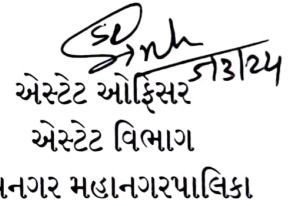 5/3/24
એસ્ટેટ ઓફિસર
એસ્ટેટ વિભાગ
નગર મહાનગરપાલિકા